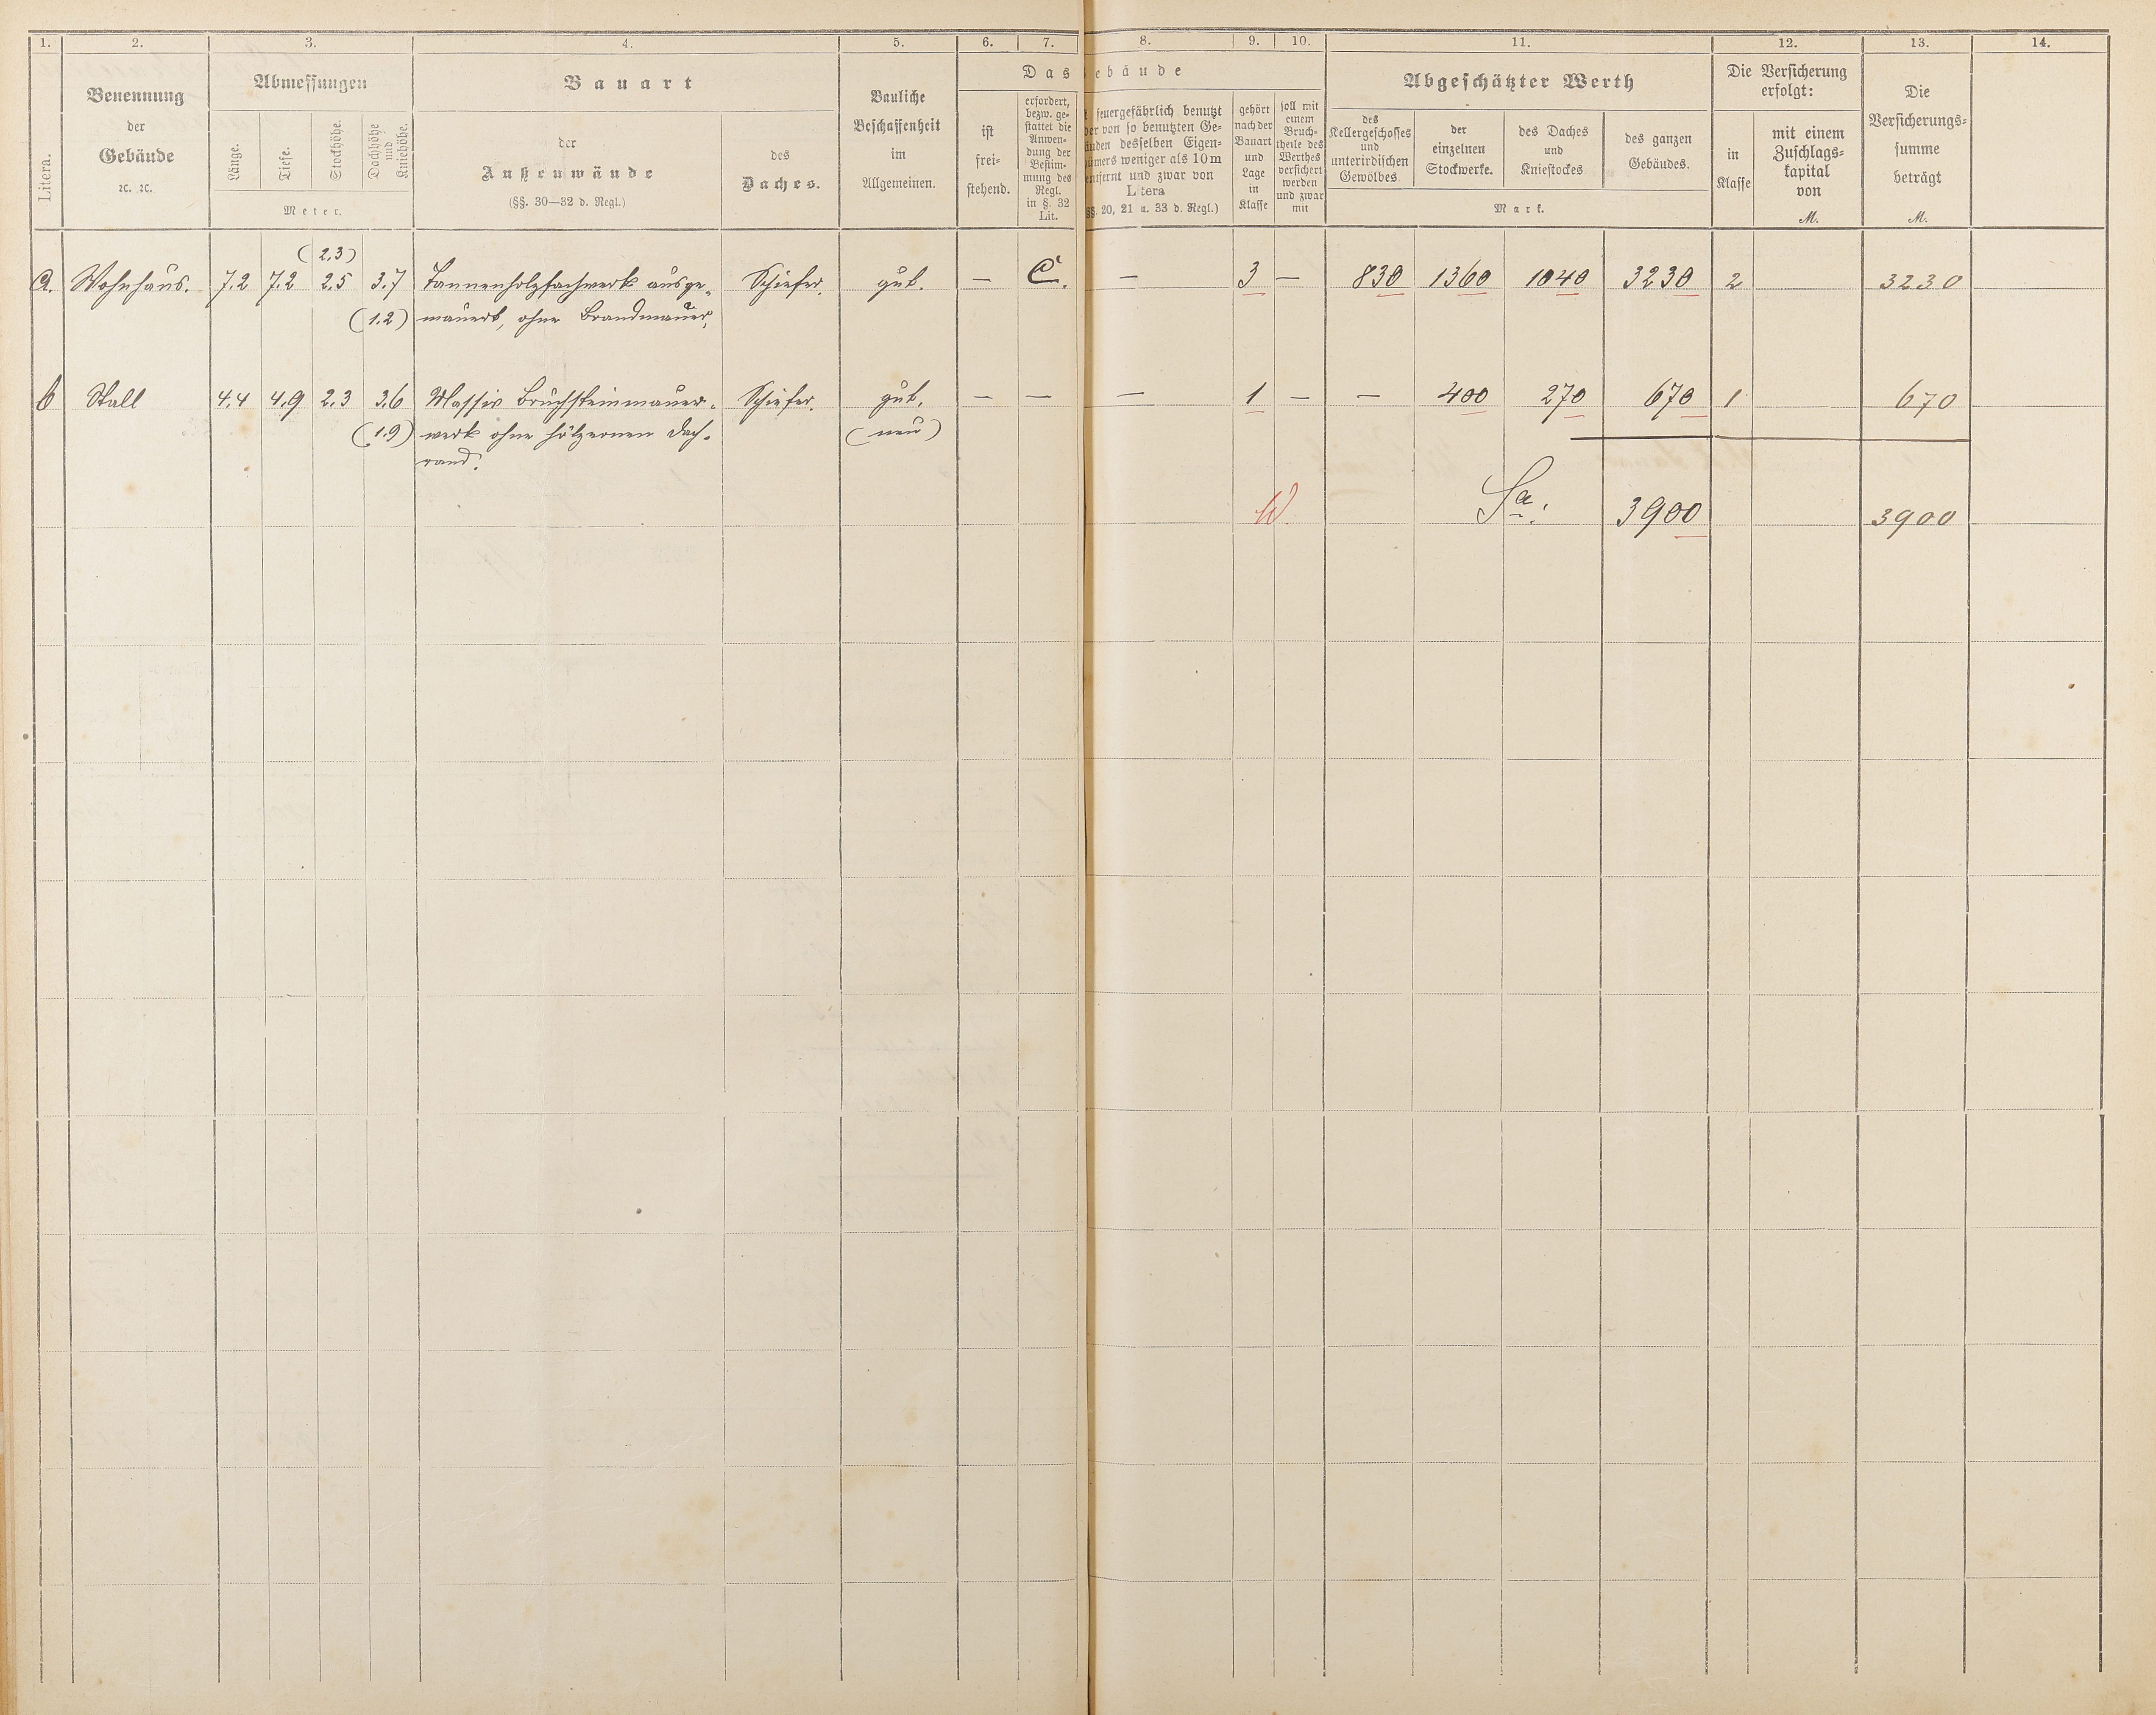 1. 2. 3. 4. 5. 6. 7. 8. 9. 10. 11. 12. 13. 14.
Litera.
Benennung
der
Gebäude
ꝛc. ꝛc.
Abmessungen
Länge.
Tiefe.
Stockhöhe.
Dachhöhe
und
Kniehöhe.
Meter.
Bauart
der
Außenwände
(§§. 30—32 d. Regl.)
des
Daches.
Bauliche
Beschaffenheit
im
Allgemeinen.
Das Gebäude
ist
frei-
stehend.
erfordert,
bezw. ge-
stattet die
Anwen-
dung der
Bestim-
mung des
Regl.
in §. 32
Lit.
feuergefährlich benutzt
der von so benutzten Ge-
äuden desselben Eigen-
ümers weniger als 10 m
entfernt und zwar von
Litera
§§. 20, 21 u. 33 d. Regl.)
gehört
nach der
Bauart
und
Lage
in
Klasse
soll mit
einem
Bruch-
theile des
Werthes
versichert
werden
und zwar
mit
Abgeschätzter Werth
des
Kellergeschosses
und
unterirdischen
Gewölbes.
der
einzelnen
Stockwerke.
des Daches
und
Kniestockes
des ganzen
Gebäudes.
Mark.
Die Versicherung
erfolgt:
in
Klasse
mit einem
Zuschlags-
kapital
von
M.
Die
Versicherungs-
summe
beträgt
M.
(2,3)
a. Wohnhaus. 7.2 7.2 2.5 3.7 Tannenholzfachwerk ausge- Schiefer. gut. — C. — 3 — 830 1360 1040 3230 2 3230
(1.2) mauert, ohne Brandmauer,
b Stall 4,4 4,9 2,3 3,6 Massiv Bruchsteinmauer- Schiefer. gut. — — — 1 — — 400 270 670 1 670
(1.9) werk ohne hölzernen Dach- (neu)
rand.
W. Sa: 3900 3900